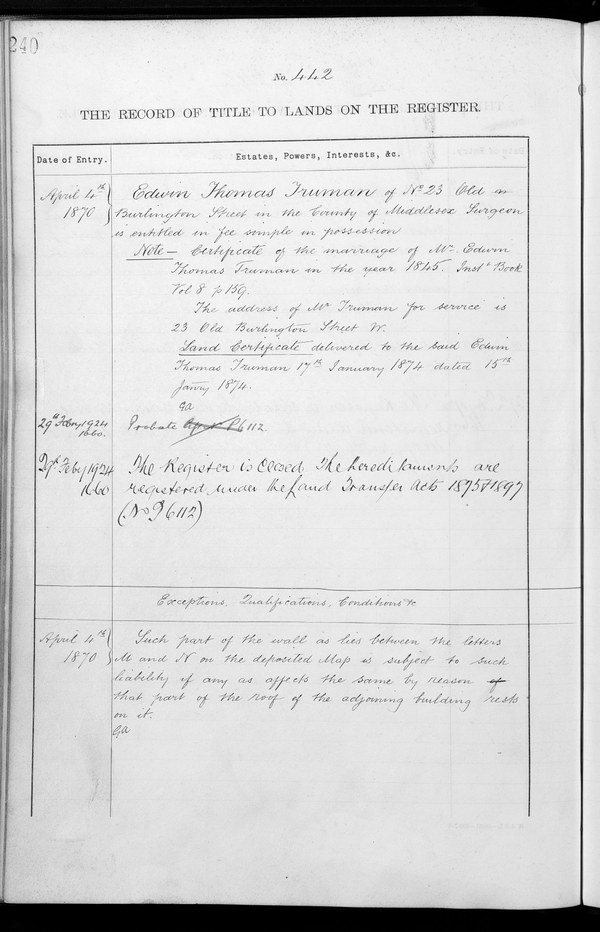 240
No. 442
THE RECORD OF TITLE TO LANDS ON THE REGISTER.
Date of Entry.
Estates, Powers, Interests, &c.
April 4th 1870
Edwin Thomas Truman of No 23 Old in
Burlington Street in the County of Middlesex Surgeon
is entitled in fee simple in possession
Note – Certificate of the marriage of Mr. Edwin
Thomas Truman in the year 1845. Inst. Book
Vol 8 p 159.
The address of Mr Truman for service is
23 Old Burlington Street W.
Land Certificate delivered to the said Edwin
Thomas Truman 17th January 1874 dated 15th
Janry 1874.
ga
29th Febry 1924
1660.
Probate P6112.
29th Feby 1924
1660
The Register is Closed. The hereditaments are
registered under the Land Transfer Acts 1875 & 1897
(No P6112)
Exceptions, Qualifications, Conditions &c
April 4th 1870
Such part of the wall as lies between the letters
M and N on the deposited Map is subject to such
liability if any as affects the same by reason of
that part of the roof of the adjoining building rests
on it.
ga